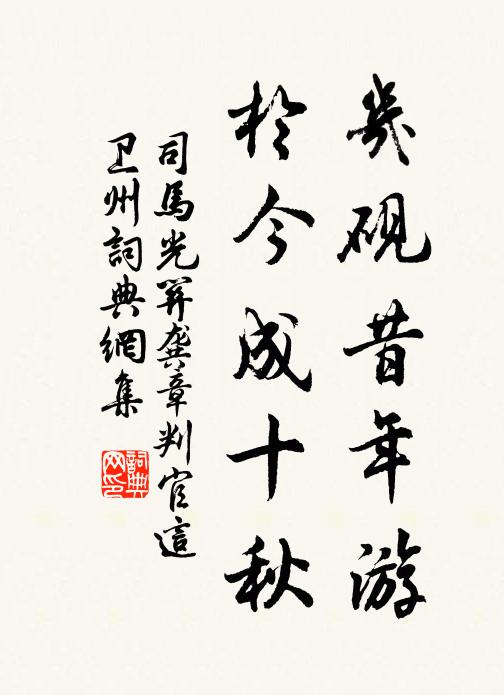 幾硯昔年游
於今成十秋
司馬光昇龔章判官這
卫州詞典網集
詞典网印